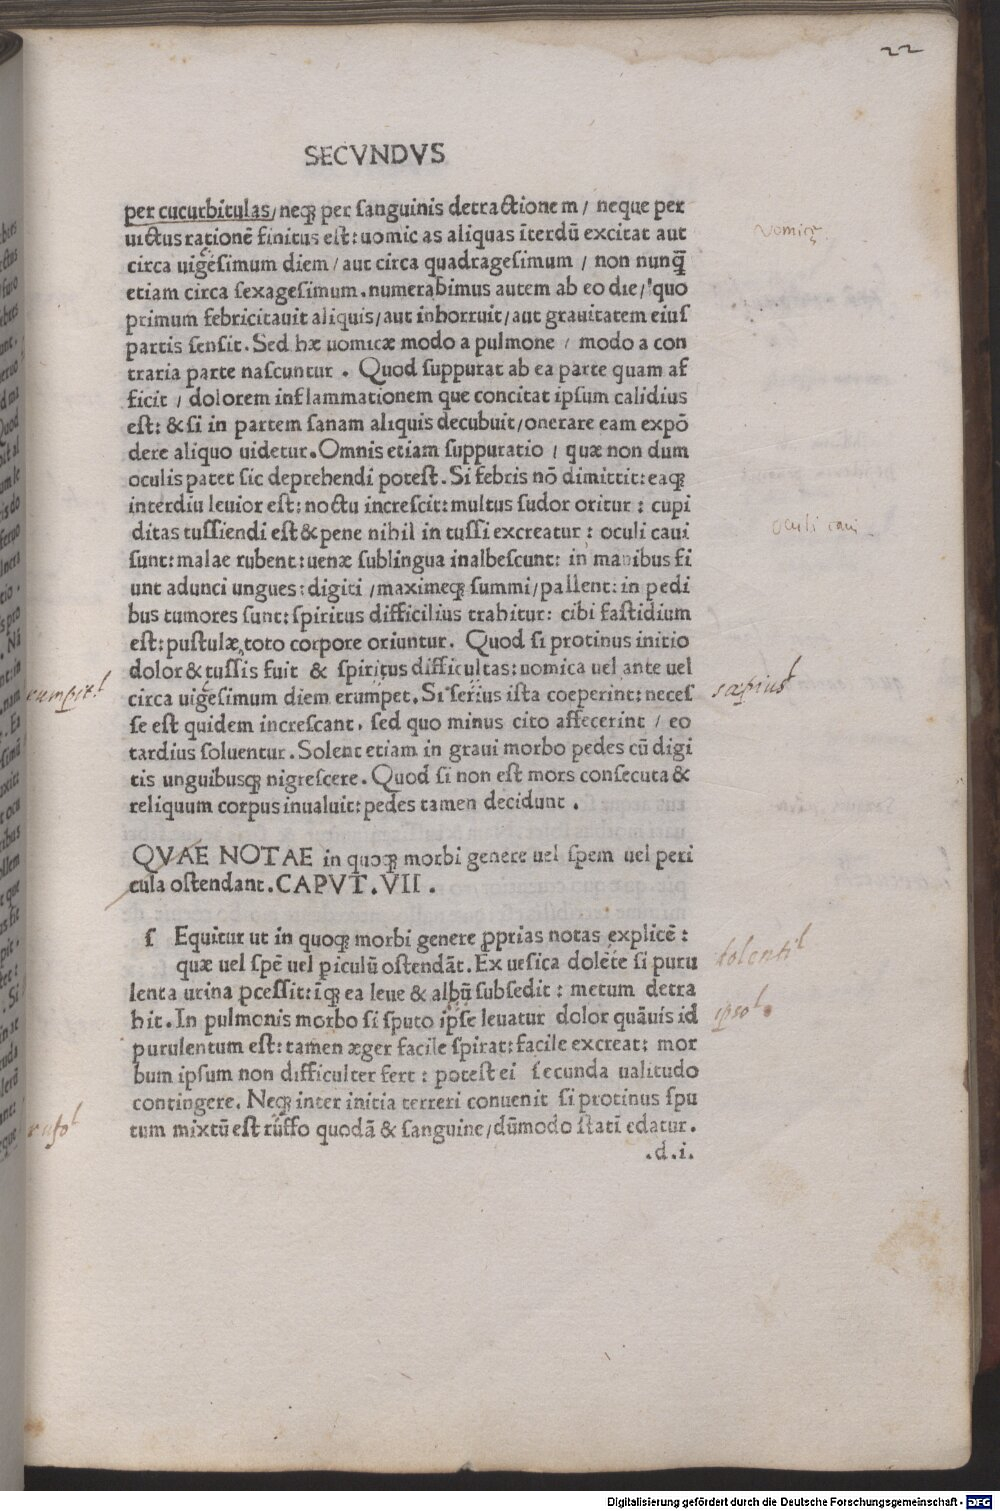 22
SECVNDVS
per cucurbitulas/neqꝫ per sanguinis detractionem/ neque per
uictus rationē finitus est: uomicas aliquas īterdū excitat aut
circa uigesimum diem/aut circa quadragesimum/ non nunq̄
etiam circa sexagesimum. numerabimus autem ab eo die/ quo
primum febricitauit aliquis/aut inhorruit/aut grauitatem eius
partis sensit. Sed hæ uomicæ modo a pulmone/ modo a con
traria parte nascuntur. Quod suppurat ab ea parte quam af
ficit/ dolorem inflammationem que concitat ipsum calidius
est: & si in partem sanam aliquis decubuit/onerare eam expō
dere aliquo uidetur. Omnis etiam suppuratio/ quæ non dum
oculis patet sic deprehendi potest. Si febris nō dimittit: eaqꝫ
interdiu leuior est: noctu increscit: multus sudor oritur: cupi
ditas tussiendi est & pene nihil in tussi excreatur: oculi caui
sunt: malae rubent: uenæ sublingua inalbescunt: in manibus fi
unt adunci ungues: digiti/maximeqꝫ summi/pallent: in pedi
bus tumores sunt: spiritus difficilius trahitur: cibi fastidium
est: pustulæ toto corpore oriuntur. Quod si protinus initio
dolor & tussis fuit & spiritus difficultas: uomica uel ante uel
circa uigesimum diem erumpet. Si serius ista coeperint: neces
se est quidem increscant. sed quo minus cito affecerint/ eo
tardius soluentur. Solent etiam in graui morbo pedes cū digi
tis unguibusqꝫ nigrescere. Quod si non est mors consecuta &
reliquum corpus inualuit: pedes tamen decidunt.
QVAE NOTAE in quoqꝫ morbi genere uel spem uel peri
cula ostendant. CAPVT. VII.
s Equitur ut in quoqꝫ morbi genere ꝓprias notas explicē:
quæ uel spē uel ꝑiculū ostendāt. Ex uesica dolēte si puru
lenta urina ꝓcessit: īqꝫ ea leue & albū subsedit: metum detra
hit. In pulmonis morbo si sputo ipse leuatur dolor quāuis id
purulentum est: tamen æger facile spirat: facile excreat: mor
bum ipsum non difficulter fert: potest ei secunda ualitudo
contingere. Neqꝫ inter initia terreri conuenit si protinus spu
tum mixtū est ruffo quodā & sanguine/dūmodo statī edatur.
.d.i.
vomicę
oculi caui
rumpit.l
sæpius.l
dolenti.l
ipso.l
rufo.l
Digitalisierung gefördert durch die Deutsche Forschungsgemeinschaft - DFG